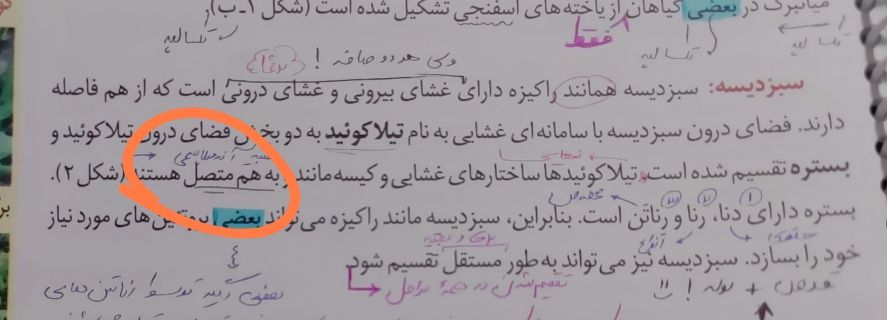 میانبرگ در بعضی گیاهان از یاخته‌های اسفنجی تشکیل شده است (شکل ۱ـ ب).
فقط
تک لپه
تک لپه
ولی هر دو صاف !
سبزدیسه: سبزدیسه همانند راکیزه دارای غشای بیرونی و غشای درونی است که از هم فاصله
دارند. فضای درون سبزدیسه با سامانه‌ای غشایی به نام تیلاکوئید به دو بخش فضای درون تیلاکوئید و
بستره تقسیم شده است. تیلاکوئیدها ساختارهای غشایی و کیسه‌مانند و به هم متصل هستند (شکل ۲).
بستره دارای دنا، رنا و رناتن است. بنابراین، سبزدیسه مانند راکیزه می‌تواند بعضی پروتئین‌های مورد نیاز
خود را بسازد. سبزدیسه نیز می‌تواند به‌طور مستقل تقسیم شود.
تقسیم شدن در همهٔ مراحل
بعضی دیگه توسط رناتن های